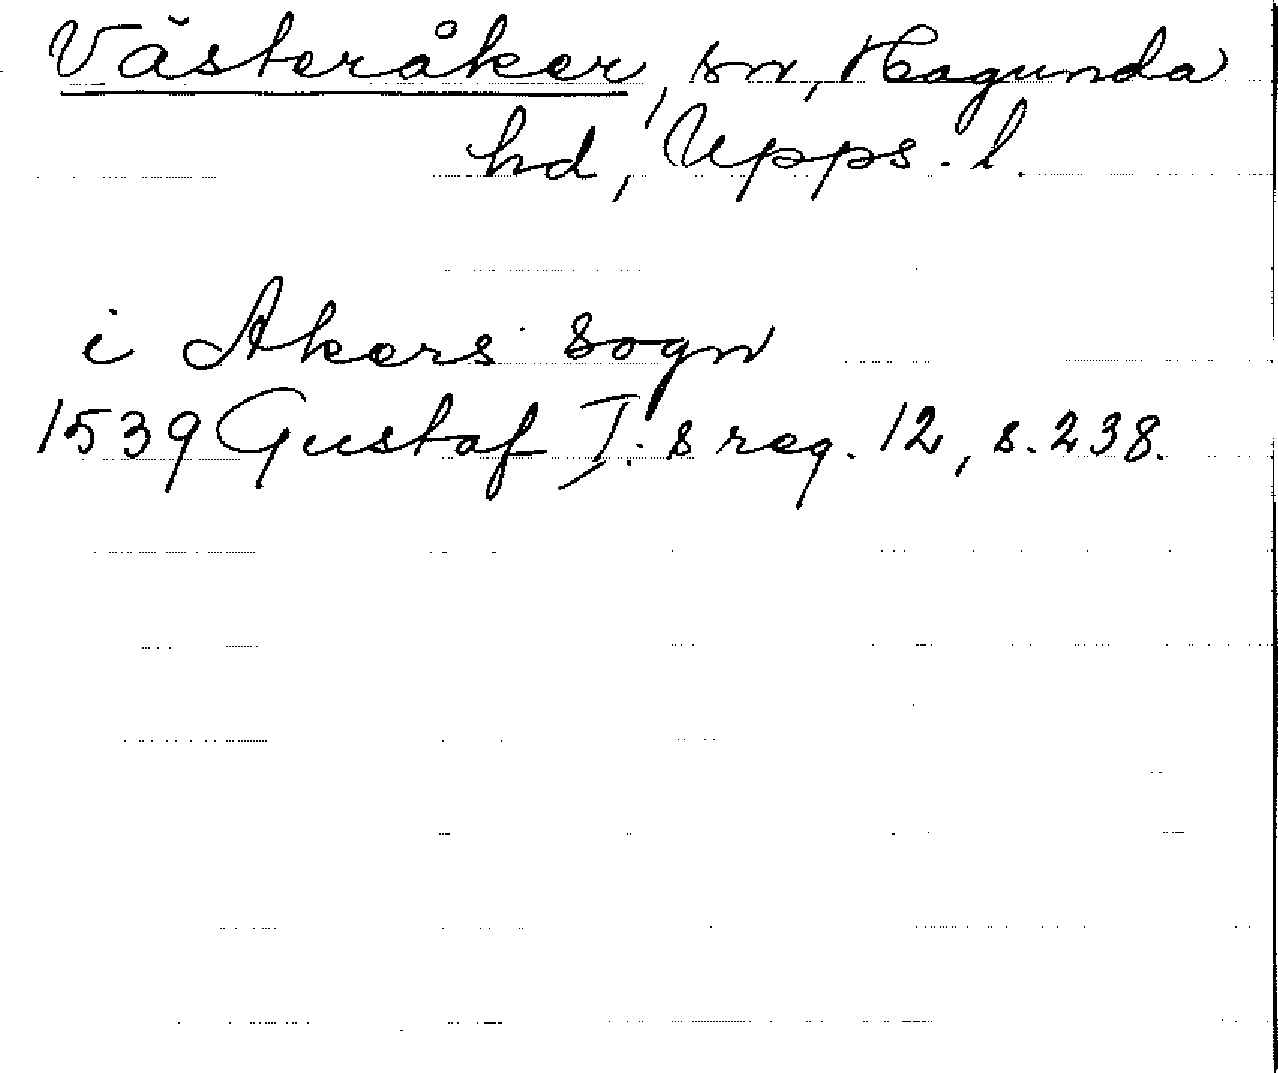 Västeråker, sn, Hagunda
hd, Upps. l.
i Akers sogn
1539 Gustaf I:s reg. 12, s. 238.